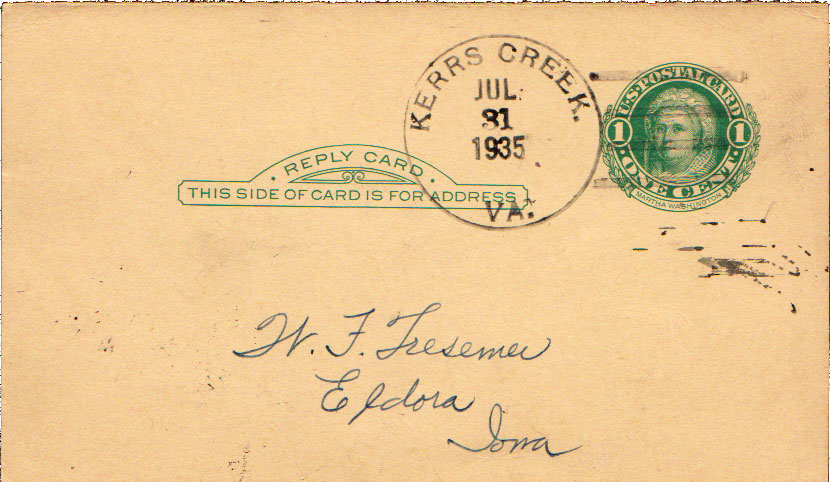 KERRS CREEK.
JUL.
31
1935
VA.
U·S·POSTAL CARD
1 1
·ONE CENT·
MARTHA WASHINGTON
· REPLY CARD ·
THIS SIDE OF CARD IS FOR ADDRESS
W. F. Tresemer
Eldora
Iowa